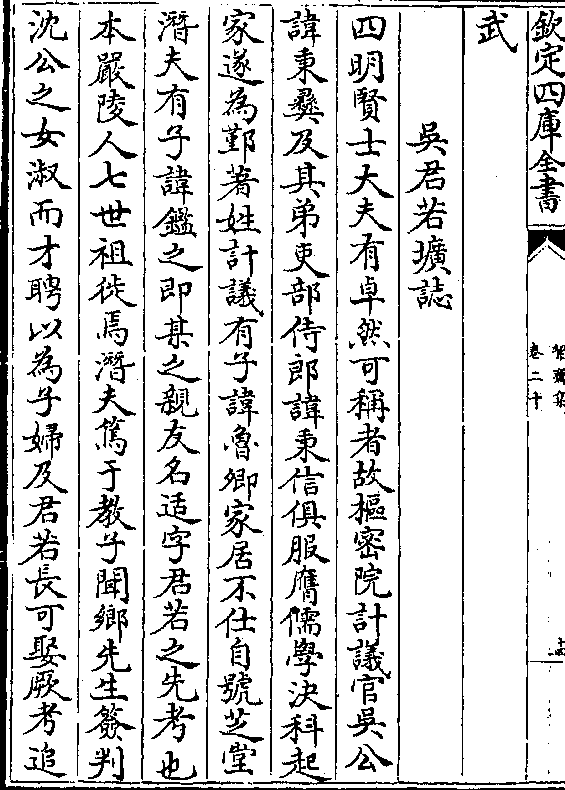 欽定四庫全書
卷二十
武
吳君若壙誌
四明賢士大夫有卓然可稱者故樞密院計議官吳公
諱秉彞及其弟吏部侍郎諱秉信俱服膺儒學決科起
家遂為鄞著姓計議有子諱魯卿家居不仕自號芝堂
潛夫有子諱鑑之即某之親友名适字君若之先考也
本嚴陵人七世祖徙焉潛夫篤于教子聞鄉先生簽判
沈公之女淑而才聘以為子婦及君若長可娶厥考追